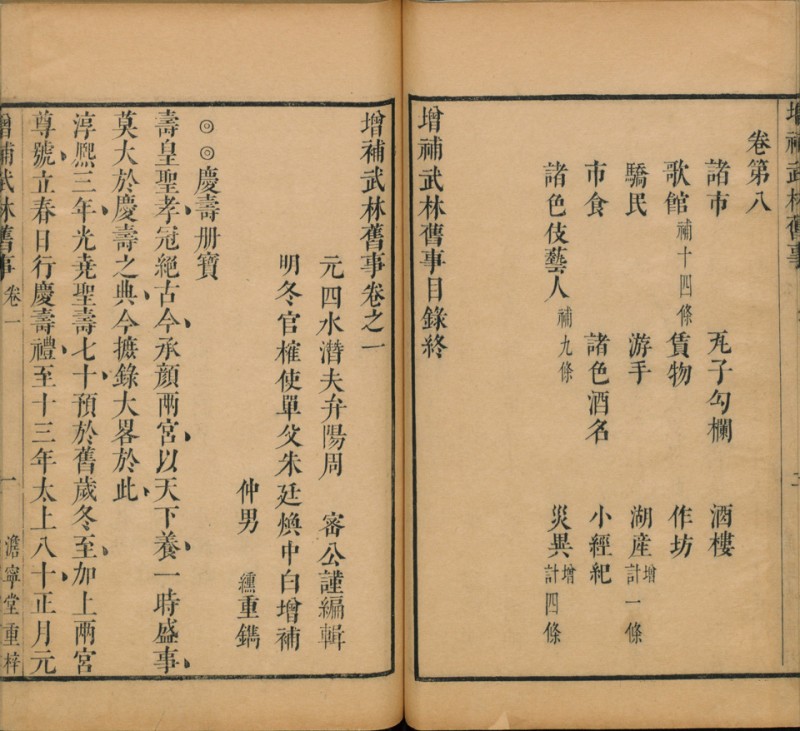 增補武林舊事
卷第八
諸市 瓦子勾欄 酒樓
歌館補十四條 賃物 作坊
驕民 游手 湖産增計一條
市食 諸色酒名 小經紀
諸色伎藝人補九條 災異增計四條
增補武林舊事目錄終
增補武林舊事卷之一
元四水潛夫弁陽周 密公謹編輯
明冬官榷使單父朱廷煥中白增補
仲男 纁重鐫
◎◎慶壽册寶
壽皇聖孝冠絕古今承顏兩宮以天下養一時盛事
莫大於慶壽之典今摭錄大畧於此
淳熙三年光堯聖壽七十預於舊歲冬至加上兩宮
尊號立春日行慶壽禮至十三年太上八十正月元
增補武林舊事 卷一 一 澹寧堂重梓